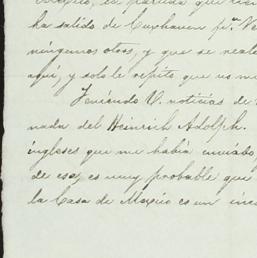 en partida que
ha salido de Cuxhaven pr. Ve
ningunos otros, y que se reale
aquí, y solo le repito que us me
Teniéndo V. noticias de
nada del Heinrich Adolph.
ingleses que me había enviado,
de esa, es muy probable que
la Casa de Mexico es un ince